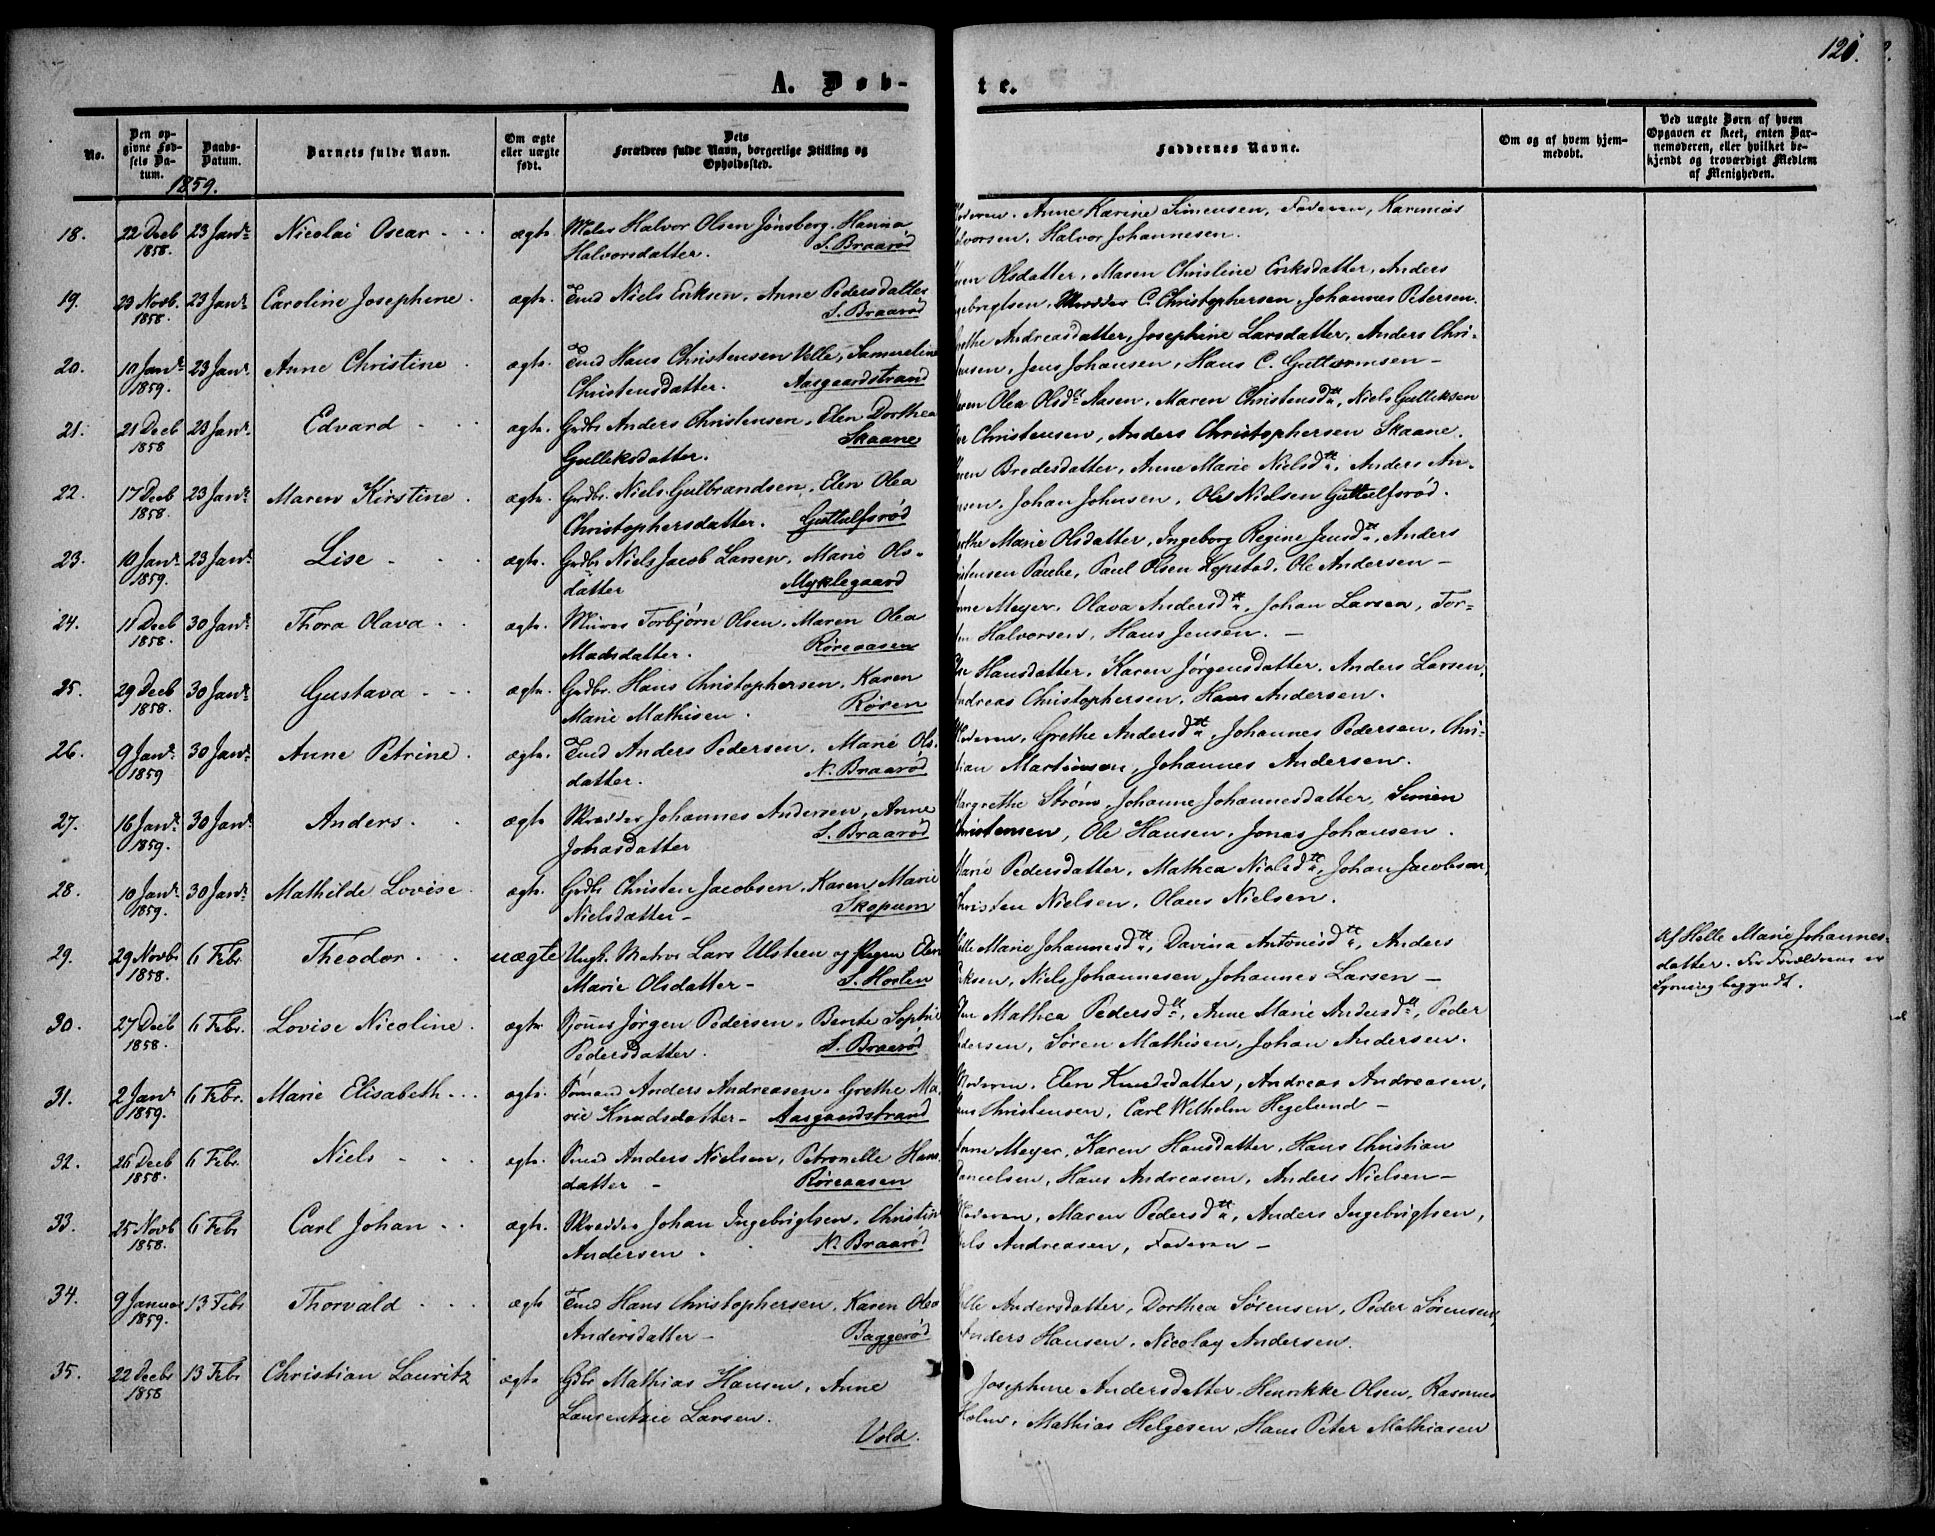 120.
A. Døb-
te.
No.
Den opgivne Fødsels Datum.
Daabs-Datum.
Barnets fulde Navn.
Om ægte eller uægte født.
Dets Forældres fulde Navn, borgerlige Stilling og Opholdssted.
Faddernes Navne.
Om og af hvem hjemmedøbt.
Ved uægte Børn af hvem Opgaven er skeet, enten Barnemoderen, eller hvilket bekjendt og troværdigt Medlem af Menigheden.
1859.
18. 22 Decb 1858. 23 Janr. Nicolai Oscar ægte. Maler Halvor Olsen Jønsberg, Hanna
Halvorsdatter. S. Braarød
Anne Karine Simensen, Faderen, Karinius
Halvor Johannesen.
19. 29 Novb. 1858. 23 Janr. Caroline Josephine. ægte. Niels Eriksen, Anne Pedersdatter
S. Braarød
Olsdatter, Maren Christine Eriksdatter, Anders
C. Christophersen, Johannes Petersen.
20. 10 Janr. 1859. 23 Janr. Anne Christine. ægte. Hans Christensen Velle, Samueline
Christensdatter. Aasgaardstrand
Andreasdatter, Josephine Larsdatter, Anders Chri-
Jens Johansen, Hans C. Guttormsen –
21. 21 Decb 1858 23 Janr. Edvard ægte. Grdbr Anders Christensen, Elen Dorthea
Gulliksdatter. Skaane
Olea Olsdtr Aasen, Maren Christensdtr, Niels Gulliksen
Christensen, Anders Christophersen Skaane.
22. 17 Decb 1858. 23 Janr. Maren Kirstine. ægte. Grdbr. Niels Gulbrandsen, Elen Olea
Christophersdatter. Guttulfsrød
Bredesdatter, Anne Marie Nielsdtr, Anders An-
Johan Johnsen, Ole Nielsen Guttulfsrød.
23. 10 Janr. 1859. 23 Janr. Lise ægte. Grdbr Niels Jacob Larsen, Marie Ols-
datter Myklegaard
Marie Olsdatter, Ingeborg Regine Jensdtr, Anders
Paul Olsen Kopstad, Ole Andersen –
24. 11 Decb 1858. 30 Janr. Thora Olava. ægte. Murer Torbjørn Olsen, Maren Olea
Madsdatter. Røreaasen
Meyer, Olava Andersdtr, Johan Larsen, Tor-
Halvorsen, Hans Jensen. –
25. 29 Decb 1858. 30 Janr. Gustava ægte. Grdbr. Hans Christophersen, Karen
Marie Mathisen. Røren
Hansdatter, Karen Jørgensdatter, Anders Larsen,
Christophersen, Hans Andersen.
26. 9 Janr. 1859 30 Janr. Anne Petrine. ægte. Anders Pedersen, Marie Ols-
datter. N. Braarød
Grethe Andersdtr, Johannes Pedersen, Chri-
Martinsen, Johannes Andersen.
27. 16 Janr. 1859. 30 Janr. Anders. ægte Skrædder Johannes Andersen, Anne
Johasdatter S. Braarød
Strøm, Johanne Johannesdatter, Simen
Christensen, Ole Hansen, Jonas Johansen.
28. 10 Janr. 1859. 30 Janr. Mathilde Lovise. ægte. Grdbr Christen Jacobsen, Karen Marie
Nielsdatter – Skopum
Marie Pedersdatter, Mathea Nielsdtr, Johan Jacobsen,
Nielsen, Olaus Nielsen.
29. 29 Novbr 1858. 6 Febr. Theodor. uægte Ungk. Matros Lars Ulsteen og Pigen Elen
Marie Olsdatter – S. Horten
Marie Johannesdtr, Davina Antonisdtr, Anders
Niels Johannesen, Johannes Larsen –
Af Helle Marie Johannes-
datter. For Forældrene er
Lysning begyndt.
30. 27 Decb 1858. 6 Febr. Lovise Nicoline. ægte. Jørgen Pedersen, Bente Sophie
Pedersdatter. S. Braarød
Mathea Pedersdtr, Anne Marie Andersdtr, Peder
Søren Mathisen, Johan Andersen.
31. 2 Janr 1859. 6 Febr. Marie Elisabeth ægte. Sømand Anders Andreasen, Grethe Ma-
rie Knudsdatter – Aasgaardstrand
Elen Knudsdatter, Andreas Andreasen,
Christensen, Carl Wilhelm Hegelund –
32. 26 Decb 1858. 6 Febr. Niels ægte. Anders Nielsen, Petronelle Hans-
datter – Røreaasen
Meyer, Karen Hansdatter, Hans Christian
Hans Andreasen, Anders Nielsen –
33. 25 Novb 1858. 6 Febr Carl Johan ægte. Skrædder Johan Ingebrigtsen, Christine
Andersen. N. Braarød
Maren Pedersdtr, Anders Ingebrigtsen,
Andreasen, Faderen –
34. 9 Januar 1859. 13 Febr Thorvald ægte Hans Christophersen, Karen Olea
Andersdatter – Baggerød
Andersdatter, Dorthea Sørensen, Peder Sørensen,
Anders Hansen, Nicolay Andersen.
35. 22 Decbr 1858 13 Febr Christian Lauritz ægte Gdbr Mathias Hansen, Anne
Laurentzie Larsen.
Vold.
Josephine Andersdatter, Henrikke Olsen, Rasmus
Holm, Mathias Helgesen, Hans Peter Mathiasen